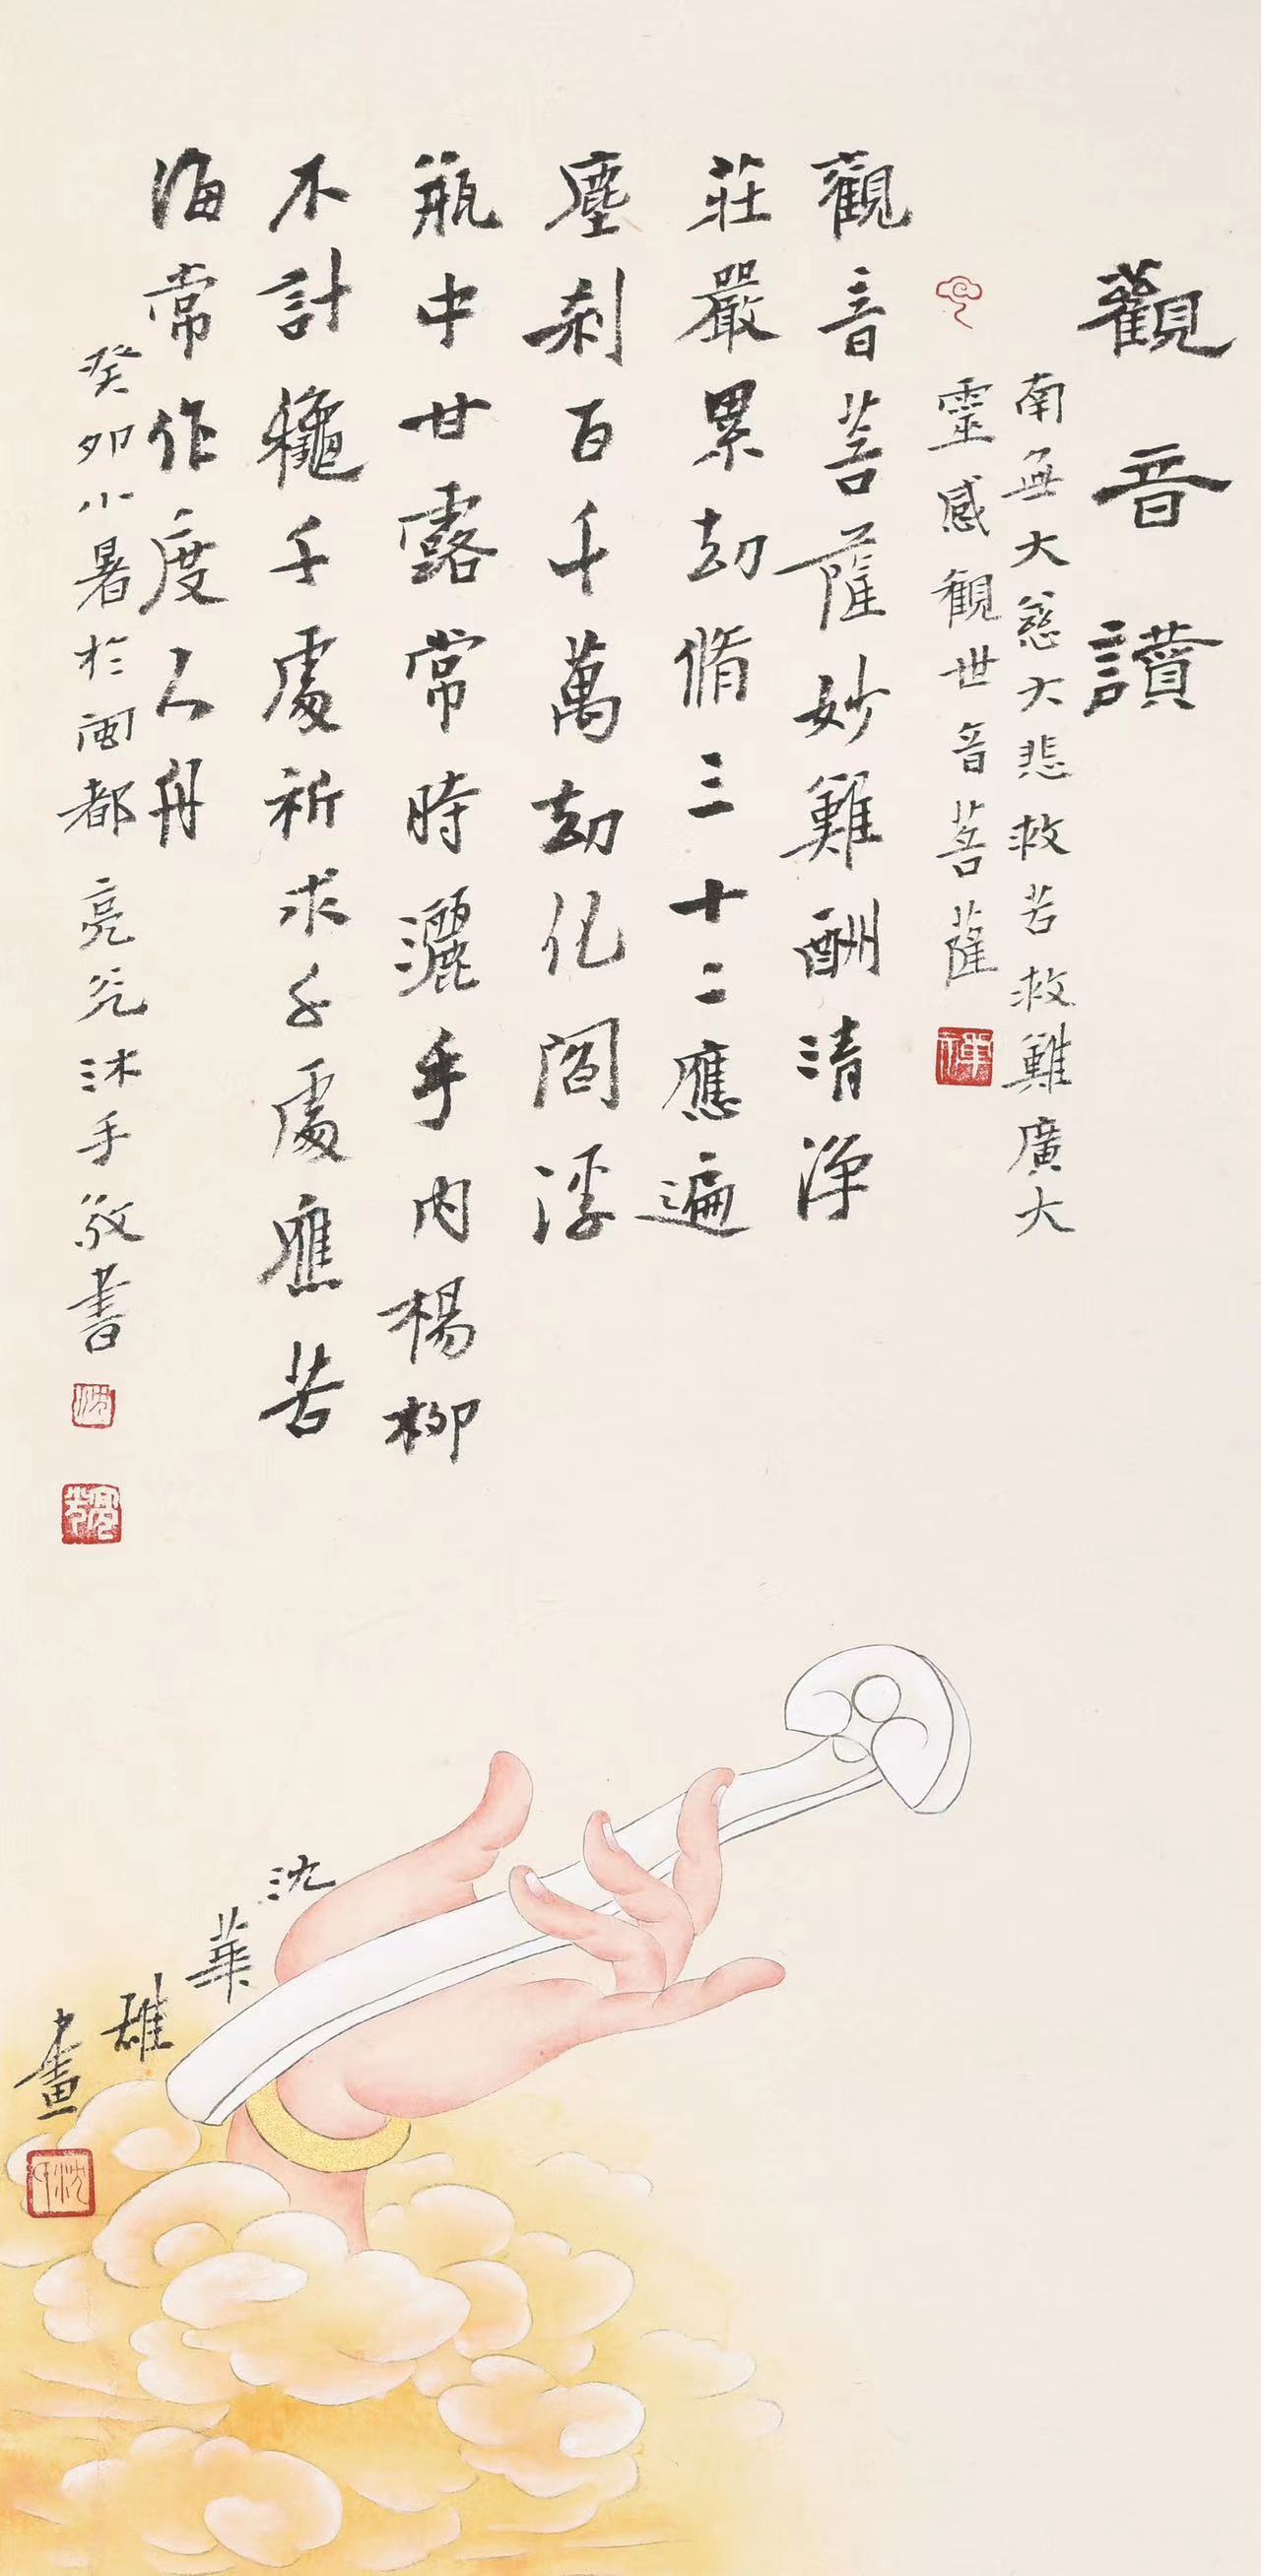 觀音讚
南無大慈大悲救苦救難廣大
靈感觀世音菩薩
觀音菩薩妙難酬清淨
莊嚴累劫脩三十二應遍
塵刹百千萬劫化閻浮
瓶中甘露常時灑手內楊柳
不計龝千處祈求千處應苦
海常作度人舟
癸卯小暑於閩都亮沐手敬書
沈華雄畫